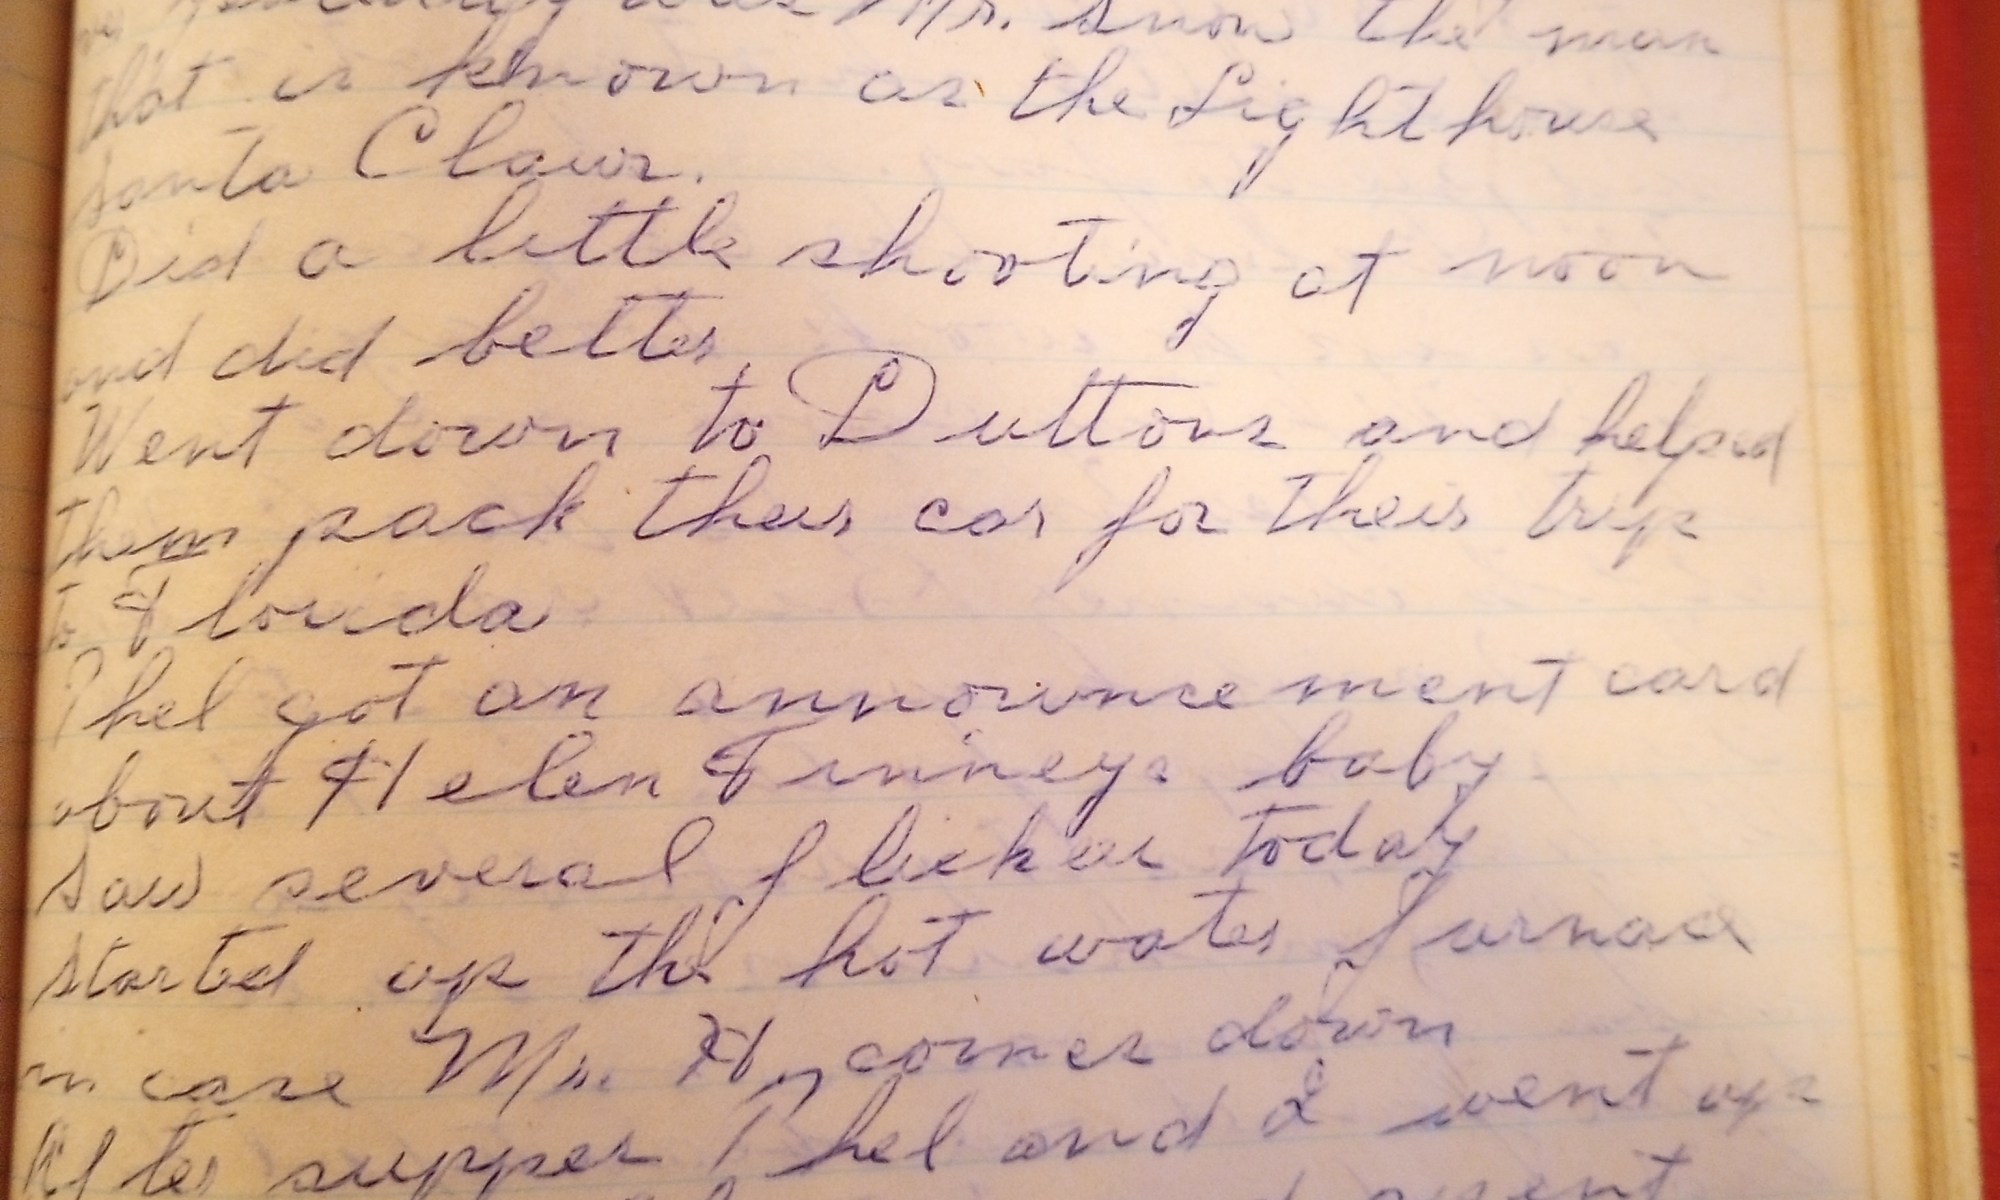 yesterday was Mr. Snow the man
that is known as the Lighthouse
Santa Claus.
Did a little shooting at noon
and did better
Went down to Duttons and helped
them pack their car for their trip
to Florida
Phel got an announcement card
about Helen Finneys baby
Saw several flicker today
Started up the hot water furnace
in case Mr. H. comes down
After supper Phel and I went up